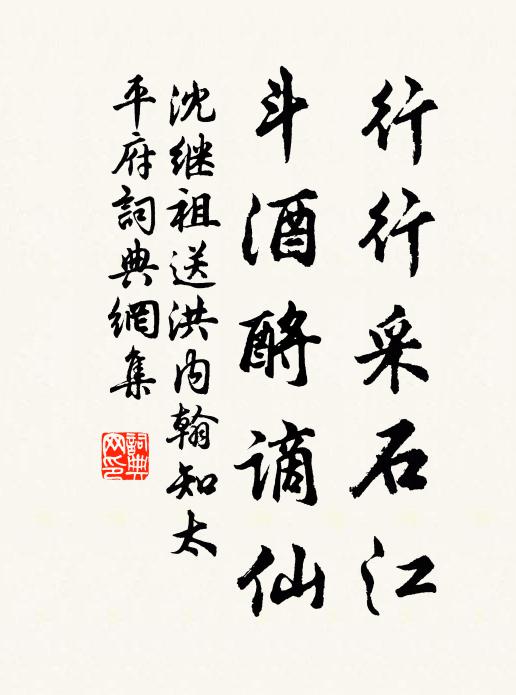 行行采石江
斗酒酹谪仙
沈继祖送洪内翰知太
平府詞典網集
詞典
网印